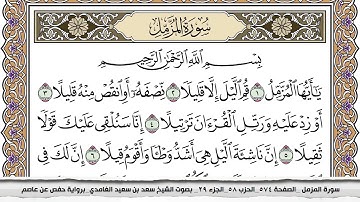 سُورَةُ الْمُزَّمِّلِ
بِسْمِ اللَّهِ الرَّحْمَٰنِ الرَّحِيمِ
يَا أَيُّهَا الْمُزَّمِّلُ ۝١ قُمِ اللَّيْلَ إِلَّا قَلِيلًا ۝٢ نِّصْفَهُ أَوِ انقُصْ مِنْهُ قَلِيلًا ۝٣
أَوْ زِدْ عَلَيْهِ وَرَتِّلِ الْقُرْءَانَ تَرْتِيلًا ۝٤ إِنَّا سَنُلْقِي عَلَيْكَ قَوْلًا
ثَقِيلًا ۝٥ إِنَّ نَاشِئَةَ اللَّيْلِ هِيَ أَشَدُّ وَطْـًٔا وَأَقْوَمُ قِيلًا ۝٦ إِنَّ لَكَ فِي
سورة المزمل _الصفحة ٥٧٤_ الحزب ٥٨_ الجزء ٢٩ _ بصوت الشيخ سعد بن سعيد الغامدي_برواية حفص عن عاصم